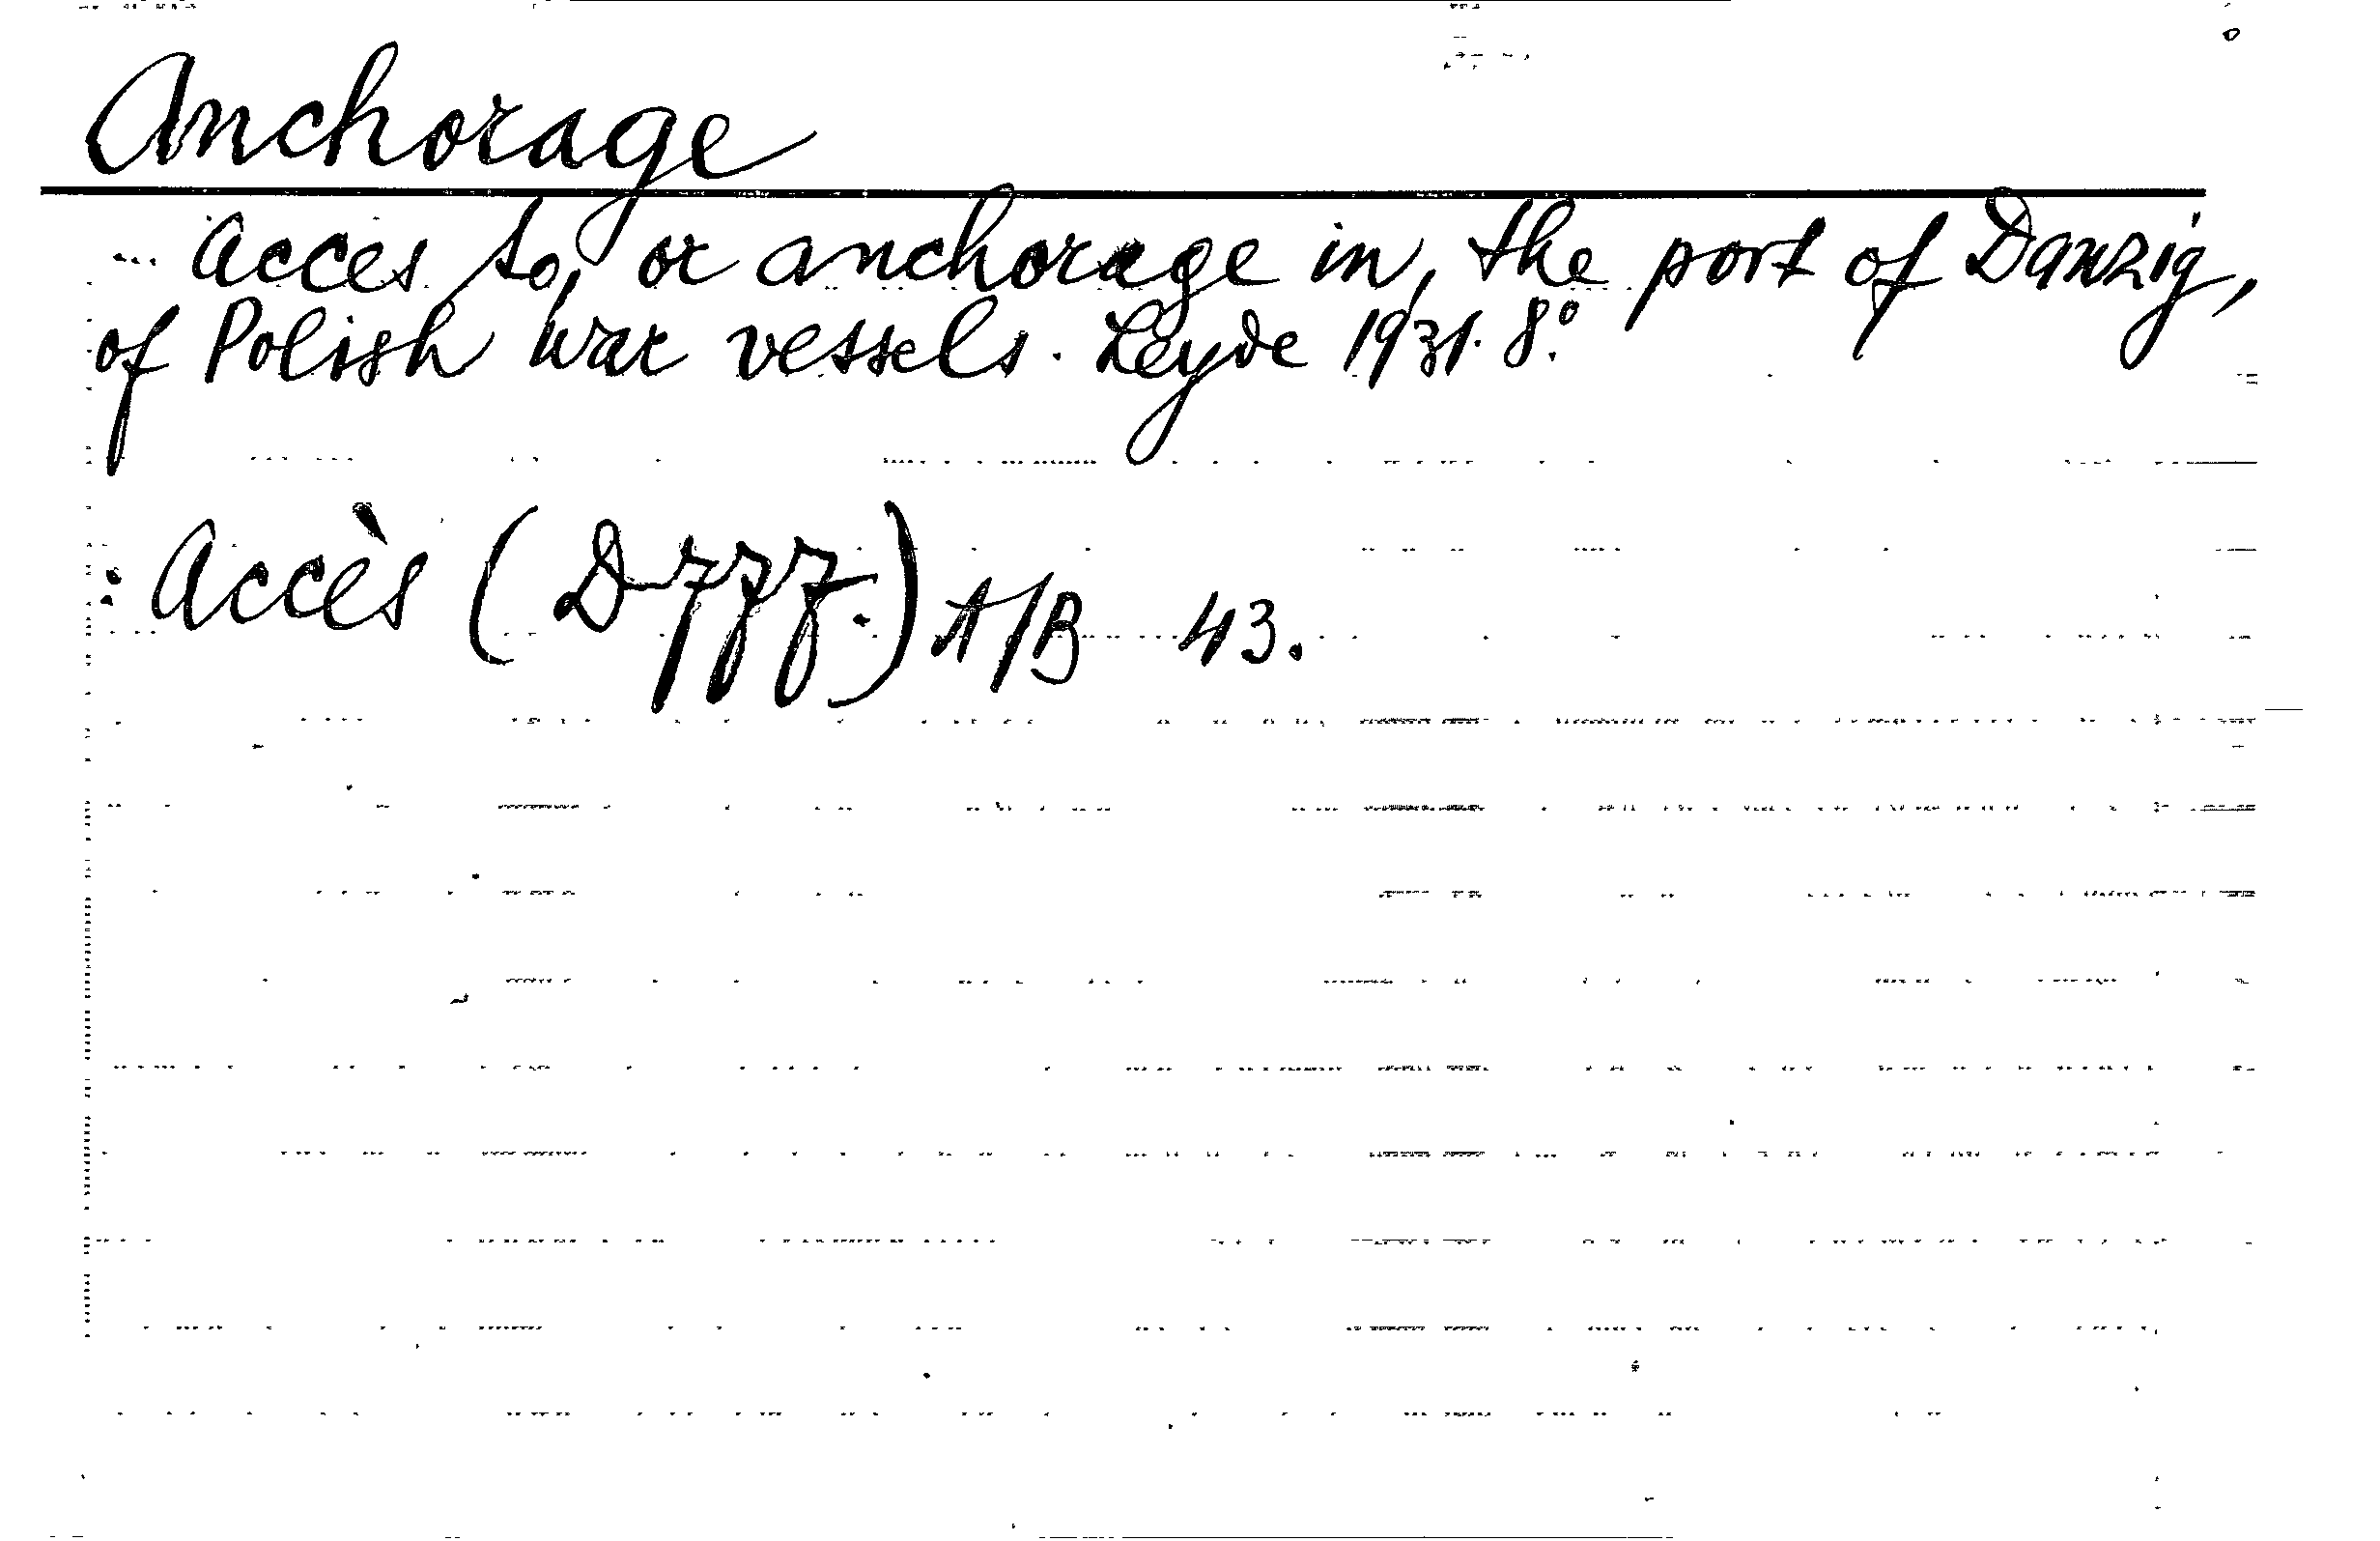 Anchorage
... Acces to, or anchorage in, the port of Danzig,
of Polish war vessels. Leyde 1931. 8°.
: Accès ( ) A/B 43.